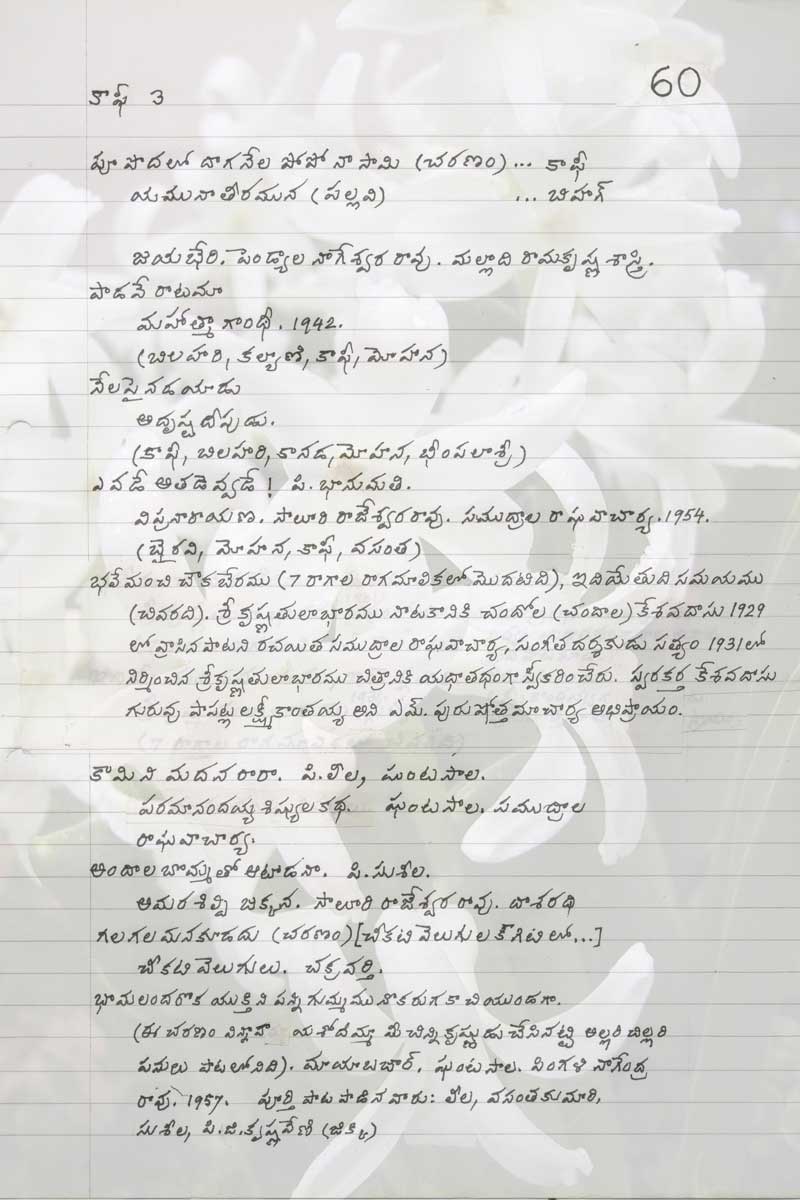 కాఫీ 3
60
పూ పొదలో దాగనేల పోపో నా సామి (చరణం) ... కాఫీ
యమునాతీరమున (పల్లవి) ... బిహాగ్
జయభేరి. పెండ్యాల నాగేశ్వర రావు. మల్లాది రామకృష్ణ శాస్త్రి.
పాడవే రాటమా
మహాత్మా గాంధీ. 1942.
(బిలహరి, కల్యాణి, కాఫీ, మోహన)
నేలపై నడయాడు
అదృష్టదీపుడు.
(కాఫీ, బిలహరి, కానడ, మోహన, భీంపలాశ్రీ)
ఎవడే అతడెవ్వడే! పి. భానుమతి.
విప్రనారాయణ. సాలూరి రాజేశ్వరరావు. సముద్రాల రాఘవాచార్య. 1954.
(భైరవి, మోహన, కాఫీ, వసంత)
భలే మంచి చౌకబేరము (7 రాగాల రాగమాలికలో మొదటిది), ఇదియే తుది సమయము
(చివరది). శ్రీకృష్ణతులాభారము నాటకానికి చందోల (చందాల) కేశవదాసు 1929
లో వ్రాసిన పాటని రచయిత సముద్రాల రాఘవాచార్య, సంగీత దర్శకుడు సత్యం 1931లో
నిర్మించిన శ్రీకృష్ణతులాభారము చిత్రానికి యథాతథంగా స్వీకరించేరు. స్వరకర్త కేశవదాసు
గురువు పాపట్ల లక్ష్మీకాంతయ్య అని ఎమ్. పురుషోత్తమాచార్య అభిప్రాయం.
కామిని మదన రారా. పి. లీల, ఘంటసాల.
పరమానందయ్య శిష్యుల కథ. ఘంటసాల. సముద్రాల
రాఘవాచార్య.
అందాల బొమ్మతో ఆటాడనా. పి. సుశీల.
అమరశిల్పి జక్కన. సాలూరి రాజేశ్వర రావు. దాశరథి
గలగలమనకూడదు (చరణం) [చీకటి వెలుగుల కౌగిటిలో...]
చీకటి వెలుగులు. చక్రవర్తి.
భామలందరొక యుక్తిని పన్ని గుమ్మమునొకరుగ కాచియుండగా.
(ఈ చరణం విన్నావా యశోదమ్మా మీ చిన్ని కృష్ణుడు చేసినట్టి అల్లరి చిల్లరి
పనులు పాటలోనిది). మాయాబజార్. ఘంటసాల. పింగళి నాగేంద్ర
రావు. 1957. పూర్తి పాట పాడిన వారు: లీల, వసంతకుమారి,
సుశీల, పి.జి.కృష్ణవేణి (జిక్కి)